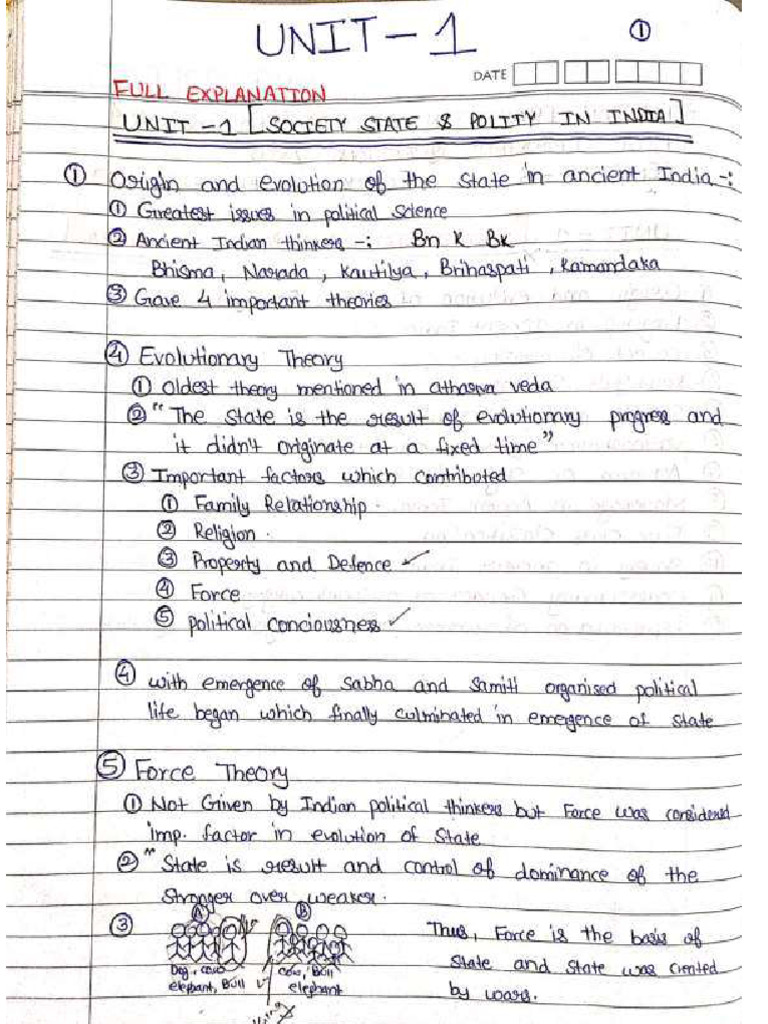 UNIT-1
①
DATE
FULL EXPLANATION
UNIT-1 [SOCIETY STATE & POLITY IN INDIA]
① Origin and evolution of the state in ancient India -:
① Greatest issues in political science
② Ancient Indian thinkers -: Bn K BK
Bhisma, Narada, Kautilya, Brihaspati, Kamandaka
③ Gave 4 important theories
④ Evolutionary Theory
① Oldest theory mentioned in atharva veda
② "The State is the result of evolutionary progress and
it didn't originate at a fixed time"
③ Important factors which contributed
① Family Relationship.
② Religion.
③ Property and Defence ✓
④ Force
⑤ political conciousness ✓
④ with emergence of Sabha and Samiti organised political
life began which finally culminated in emergence of state
⑤ Force Theory
① Not Given by Indian political thinkers but Force was considered
imp. factor in evolution of State
② "State is result and control of dominance of the
Stronger over weaker.
③ A B
Dog, cow
elephant, Bull
Cow, Bull
elephant
Thus, Force is the basis of
State and State was created
by wars.